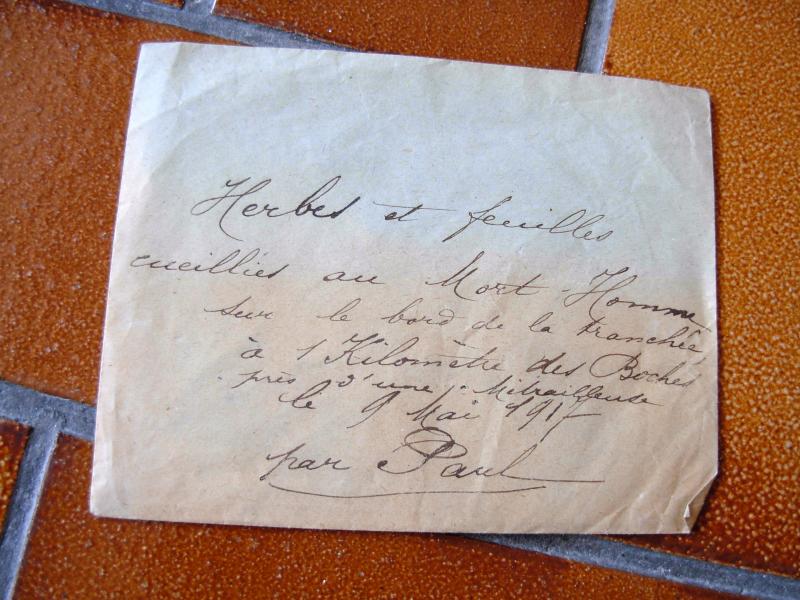 Herbes et feuilles
cueillies au Mort-Homme
sur le bord de la tranchée
à 1 Kilomètre des Boches
près d'une Mitrailleuse
le 9 Mai 1917
par Paul